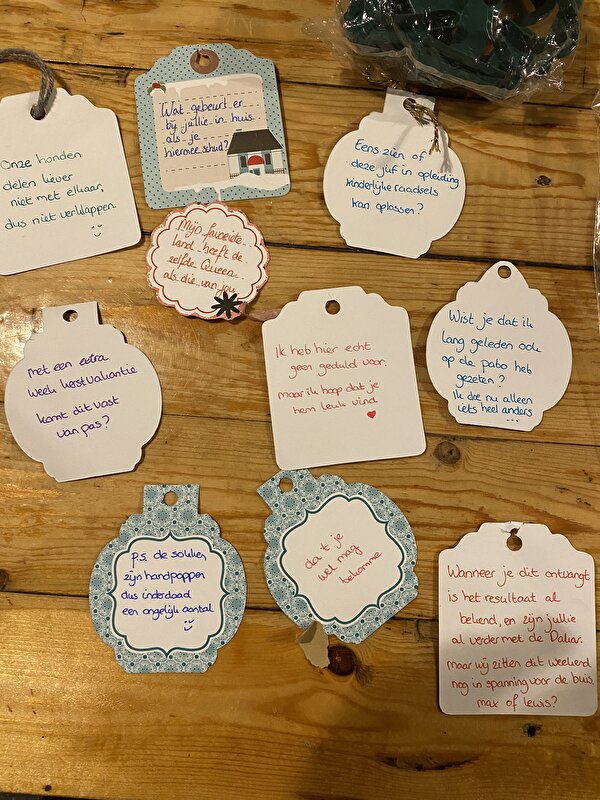 Onze honden
delen liever
niet met elkaar,
dus niet verklappen.
Wat gebeurt er
bij jullie in huis
als je
hiermee schud?
Eens zien of
deze juf in opleiding
kinderlijke raadsels
kan oplossen?
Mijn favoriete
land heeft de
zelfde Queen
als die van jou
met een extra
week kerstvakantie
komt dit vast
van pas?
Ik heb hier echt
geen geduld voor.
maar ik hoop dat je
hem leuk vind
Wist je dat ik
lang geleden ook
op de pabo heb
gezeten?
Ik doe nu alleen
iets heel anders
...
p.s. de sokken
zijn handpoppen
dus inderdaad
een ongelijk aantal
dat je
wel mag
bekomme
Wanneer je dit ontvangt
is het resultaat al
bekend, en zijn jullie
al verder met de Dakar.
maar wij zitten dit weekend
nog in spanning voor de buis.
max of lewis?